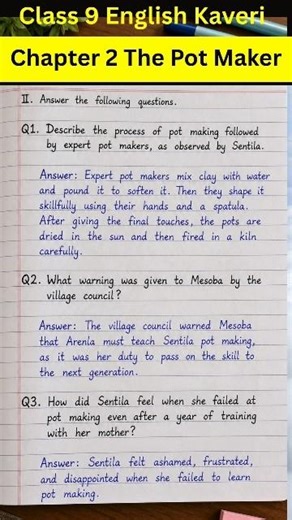 Class 9 English Kaveri
Chapter 2 The Pot Maker
II. Answer the following questions.
Q1. Describe the process of pot making followed
by expert pot makers, as observed by Sentila.
Answer: Expert pot makers mix clay with water
and pound it to soften it. Then they shape it
skillfully using their hands and a spatula.
After giving the final touches, the pots are
dried in the sun and then fired in a kiln
carefully.
Q2. What warning was given to Mesoba by the
village council?
Answer: The village council warned Mesoba
that Arenla must teach Sentila pot making,
as it was her duty to pass on the skill to
the next generation.
Q3. How did Sentila feel when she failed at
pot making even after a year of training
with her mother?
Answer: Sentila felt ashamed, frustrated,
and disappointed when she failed to learn
pot making.